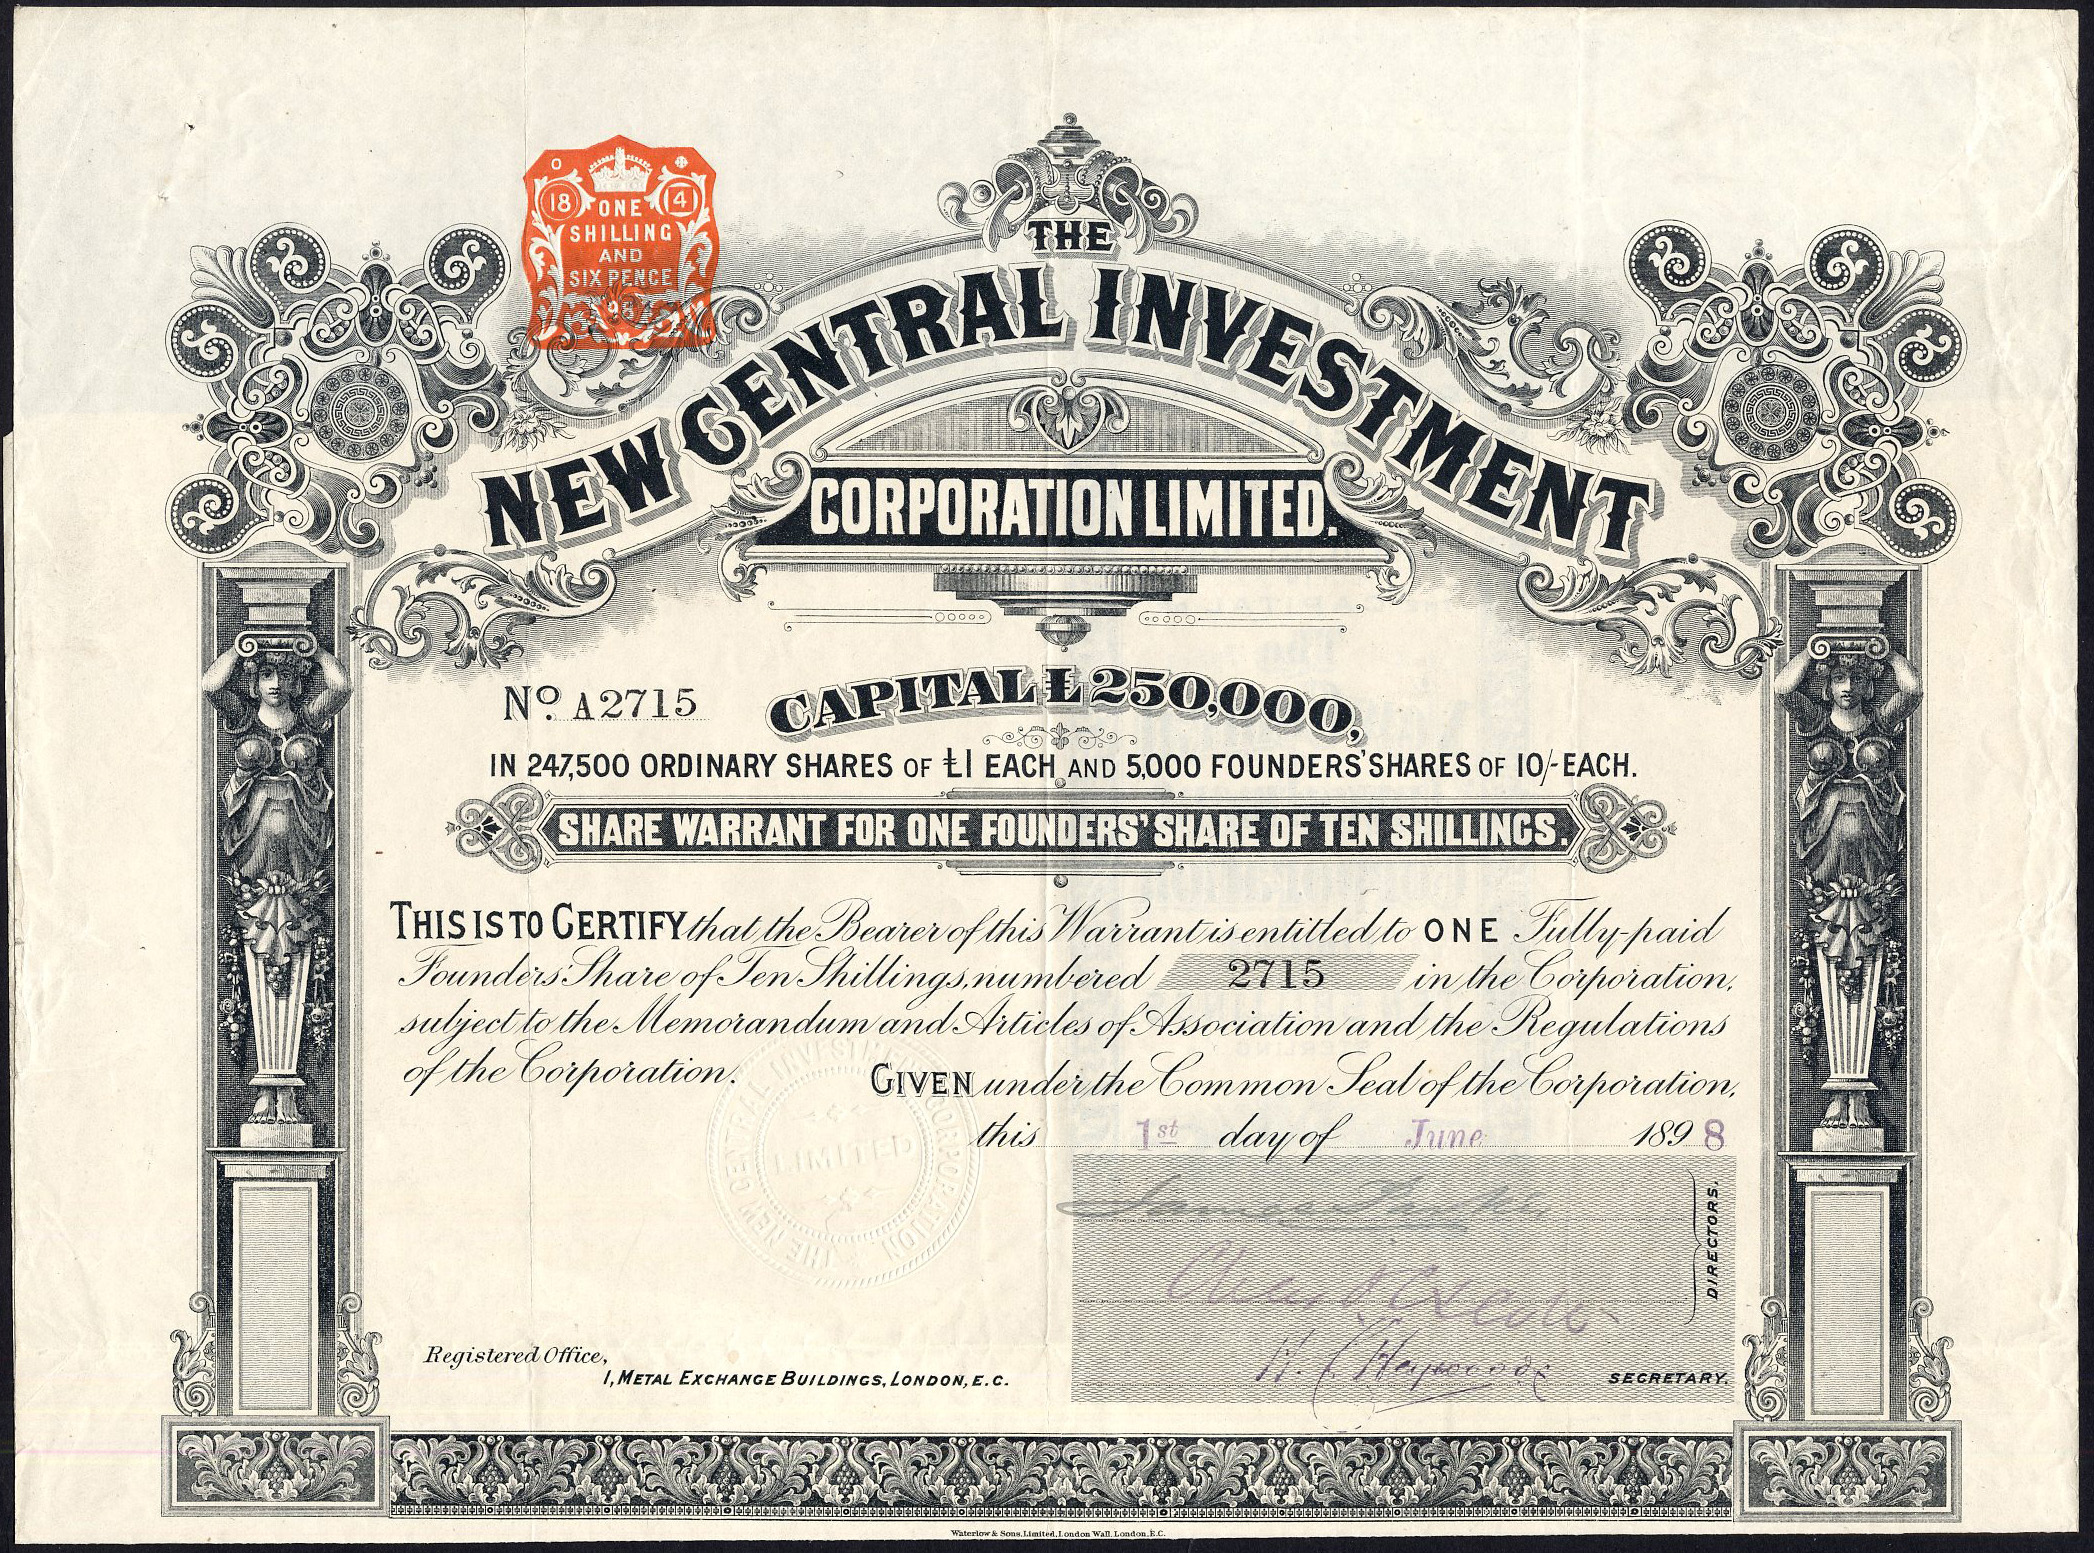 18 ONE 4
SHILLING
AND
SIX PENCE
98
THE
NEW CENTRAL INVESTMENT
CORPORATION LIMITED.
No. A2715
CAPITAL £250,000,
IN 247,500 ORDINARY SHARES OF £1 EACH AND 5,000 FOUNDERS' SHARES OF 10/- EACH.
SHARE WARRANT FOR ONE FOUNDERS' SHARE OF TEN SHILLINGS.
THIS IS TO CERTIFY that the Bearer of this Warrant is entitled to ONE Fully-paid
Founders' Share of Ten Shillings, numbered 2715 in the Corporation,
subject to the Memorandum and Articles of Association and the Regulations
of the Corporation. GIVEN under the Common Seal of the Corporation,
this 1st day of June 1898
THE NEW CENTRAL INVESTMENT CORPORATION
LIMITED
James
DIRECTORS.
Registered Office,
1, METAL EXCHANGE BUILDINGS, LONDON, E.C.
H. Heywood
SECRETARY.
Waterlow & Sons, Limited, London Wall, London, E.C.